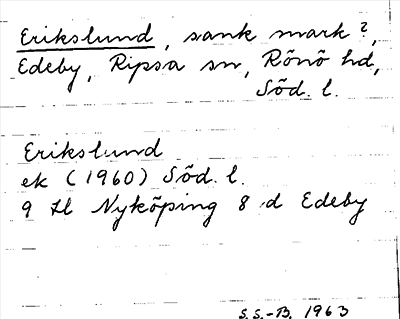 Erikslund, sank mark?,
Edeby, Ripsa sn, Rönö hd,
Söd. l.
Erikslund
ek (1960) Söd. l.
9 H Nyköping 8 d Edeby
S.S.-B. 1963